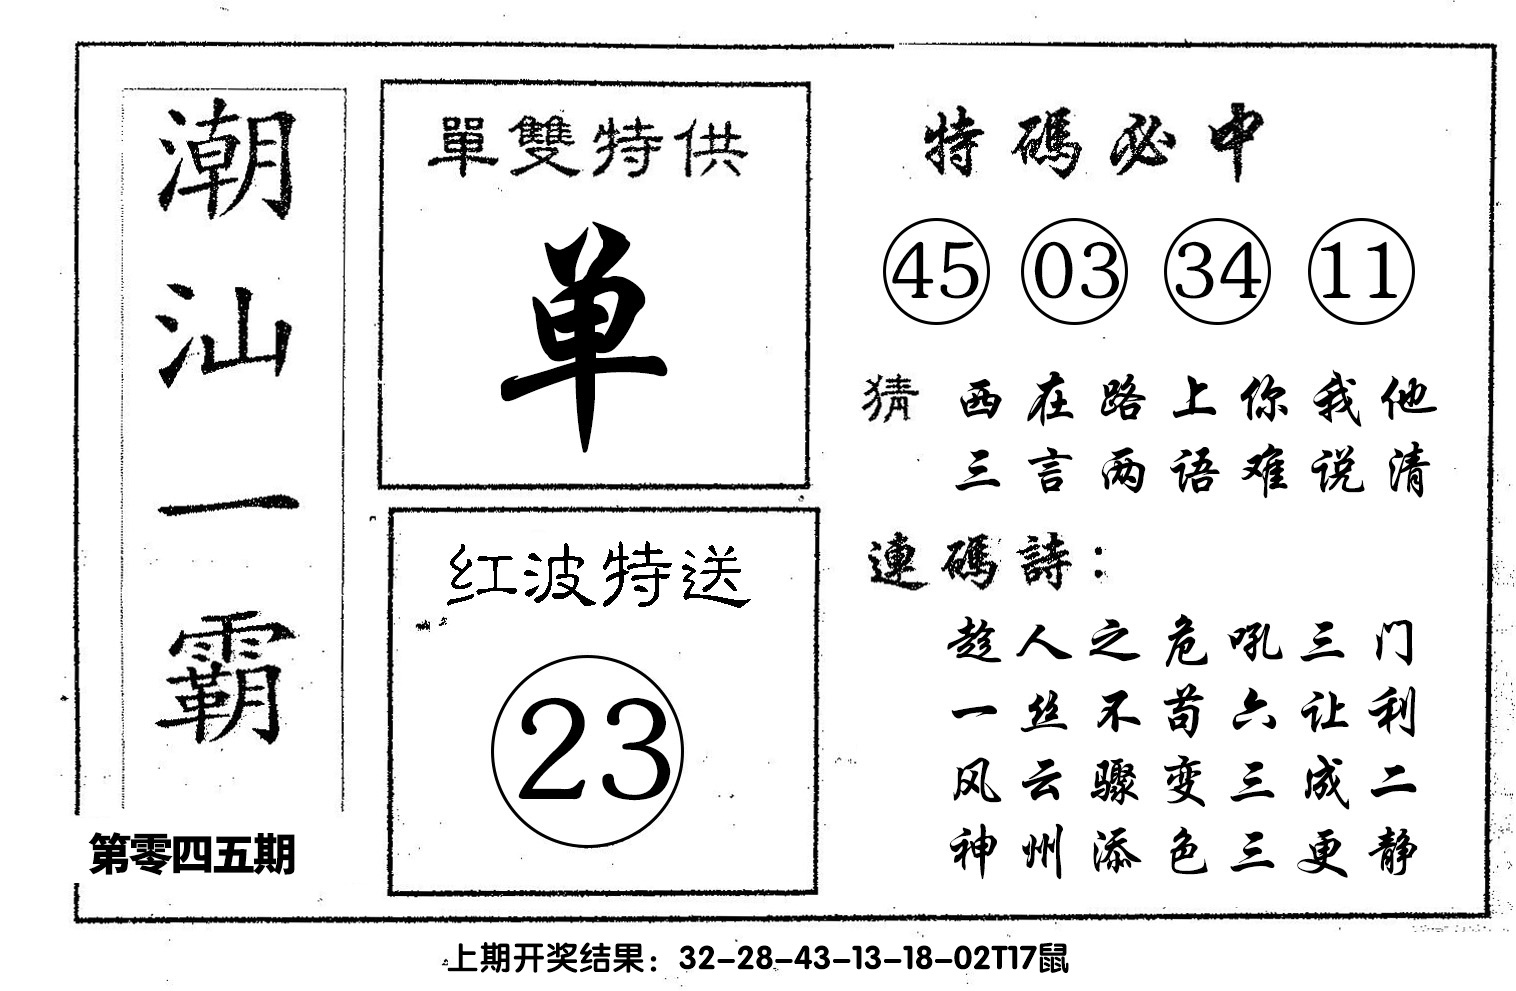 潮汕一霸
第零四五期
單雙特供
单
红波特送
23
特碼必中
45 03 34 11
猜 西在路上你我他
三言两语难说清
連碼詩：
趁人之危吼三门
一丝不苟六让利
风云骤变三成二
神州添色三更静
上期开奖结果：32-28-43-13-18-02T17鼠